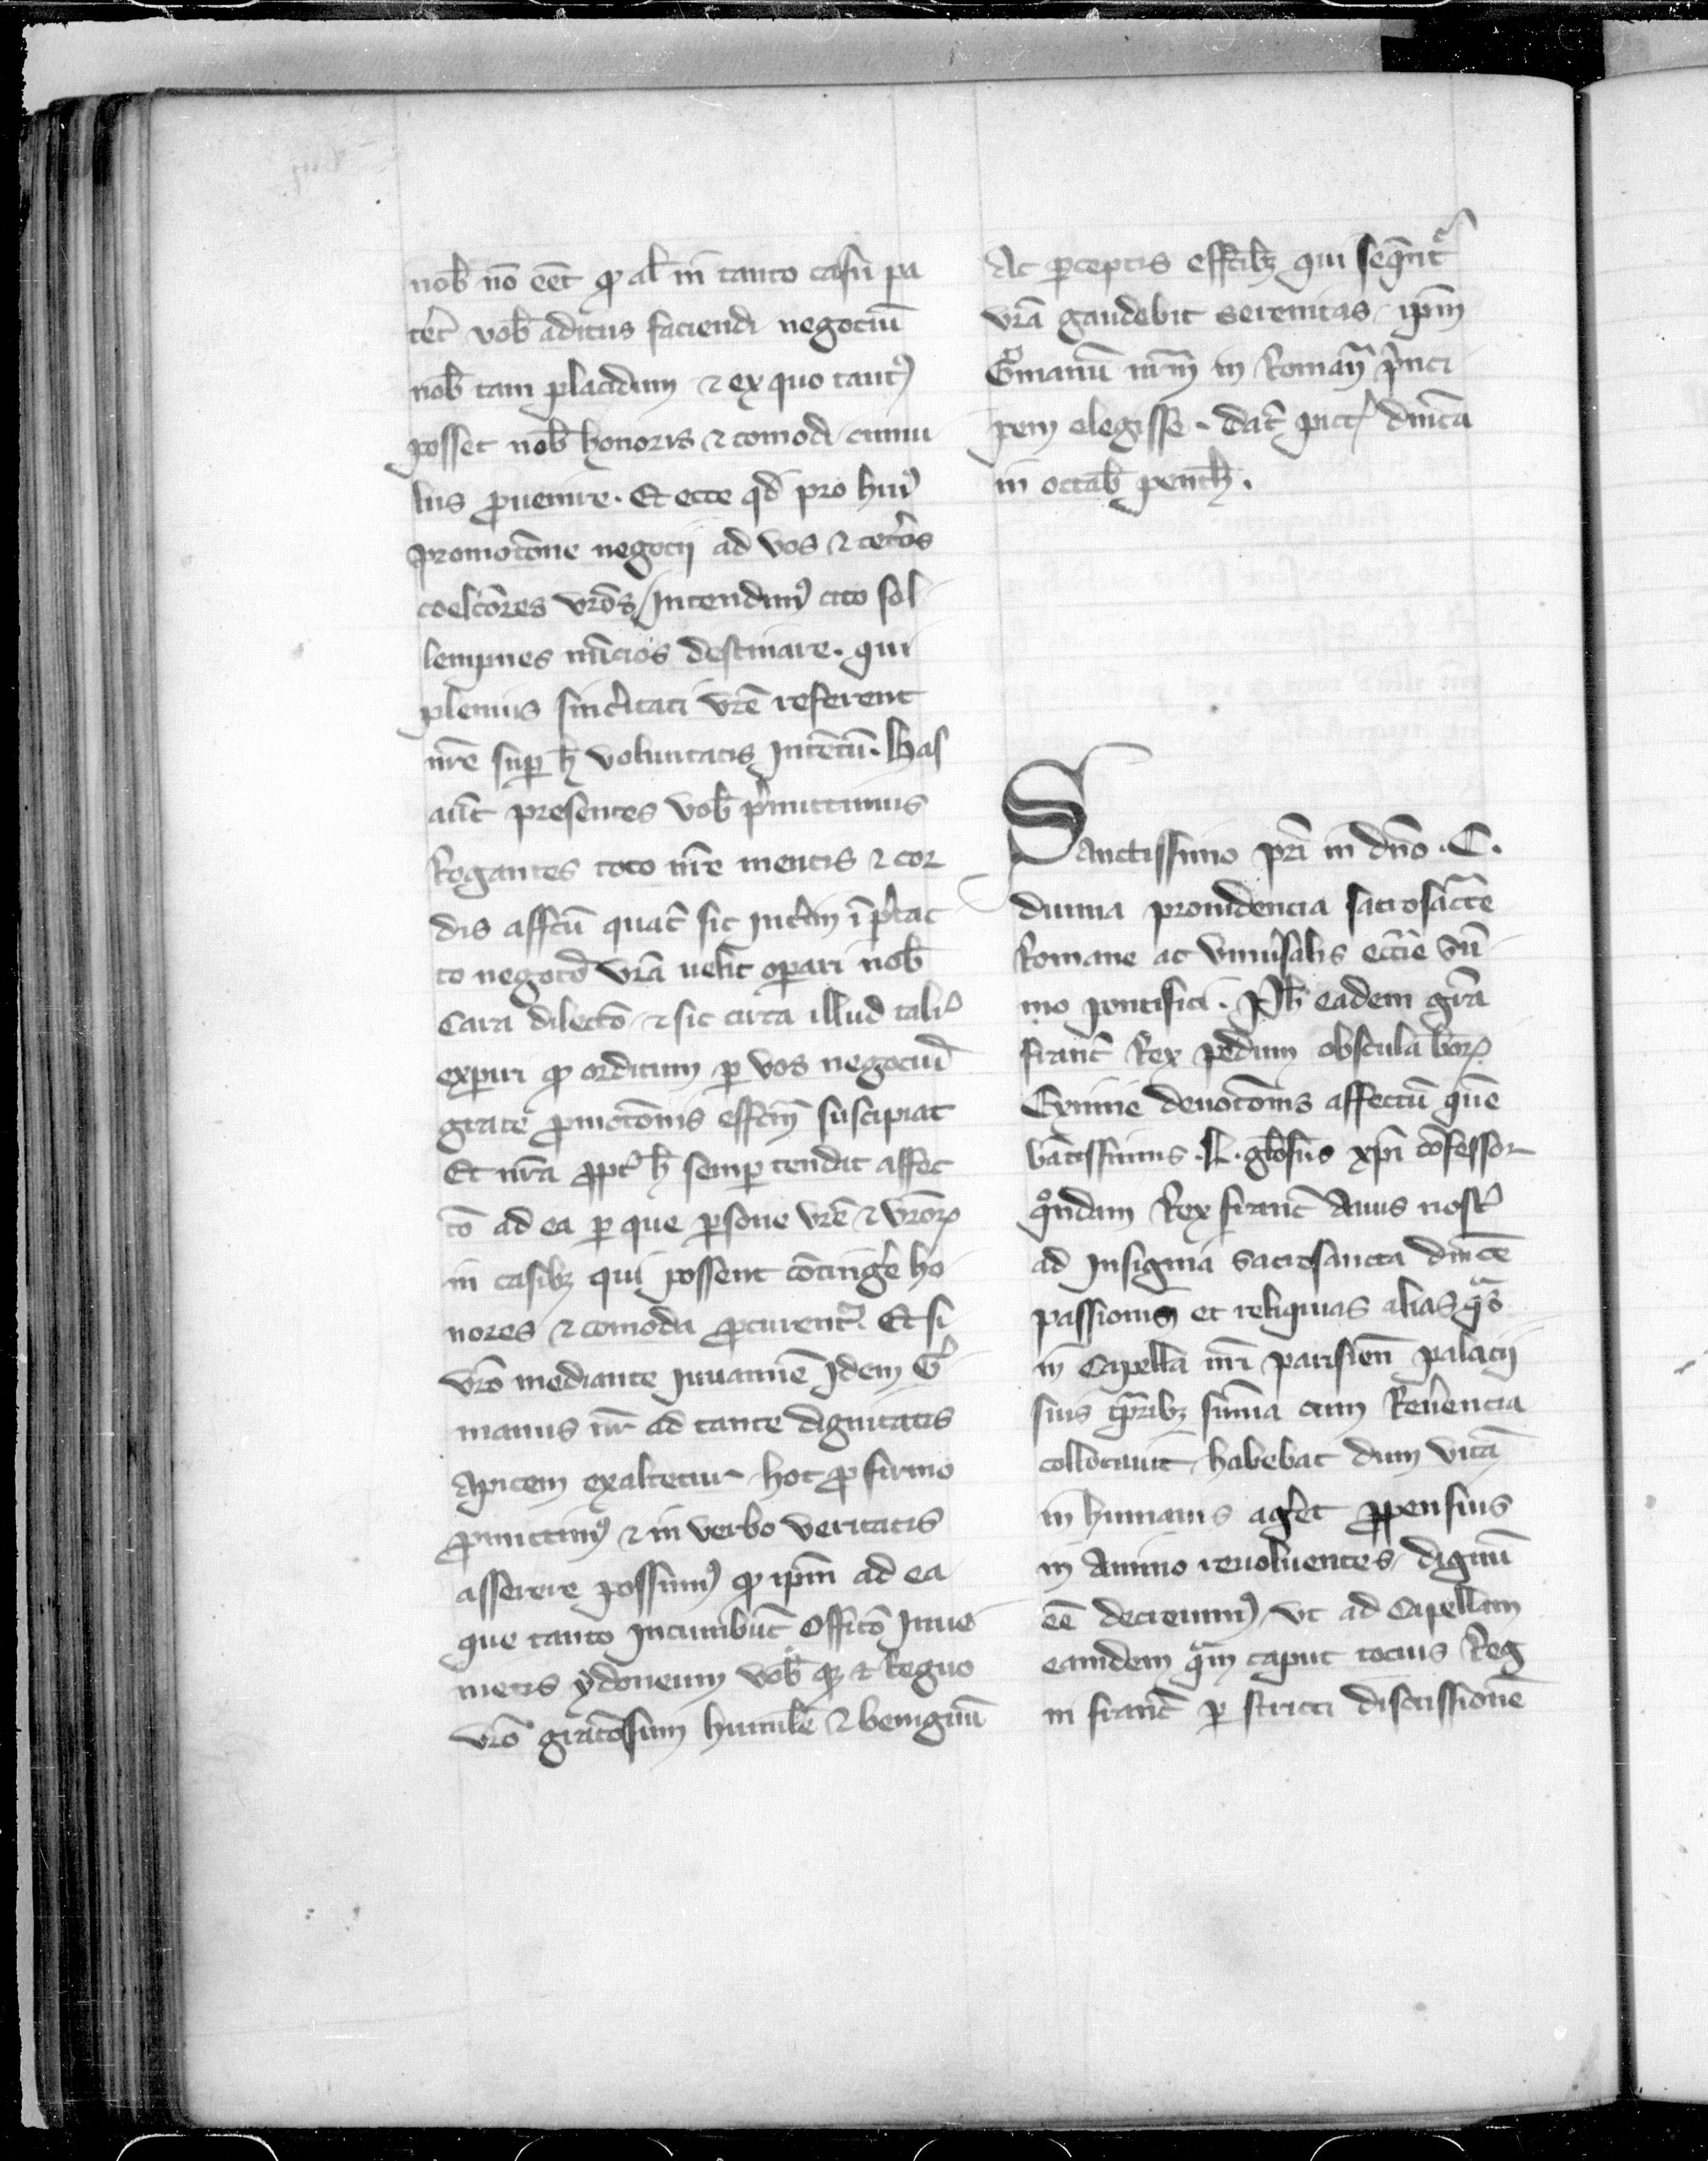 nob̄ nō eēt ꝙ al̄ in tanto casu pa
tēt vob̄ aditus faciendi negociū
nob̄ tam placidum ⁊ ex quo tantꝰ
posset nob̄ honoris ⁊ comodi cumu
lus ꝓuenire. Et ecce qd̄ pro huiꝰ
promocōne negocij ad vos ⁊ cet̄os
coelc̄ores vrōs / Intendimꝰ cito sol
lempnes nūcios destinare. qui
plenius sinc̄itati vrē referent
nrē suꝑ h̄ voluntatis Intētū. Has
aūt presentes vob̄ p̄mittimus
Rogantes toto nrē mentis ⁊ cor
dis affc̄ū quat̄ sic Int̄im ī p̄tac
to negocō vrā uelit oꝑari nob̄
Cara dilectō ⁊ sic circa illud talit̄
exꝑiri ꝙ orditum ꝑ vos negociū
grate ꝓmocōnis effc̄m suscipiat
Et nrā ꝓpt̄ h̄ semꝑ tendat affec
tō ad ea ꝑ que ꝑsone vrē ⁊ vrōꝝ
in casibꝫ qui possent cōtinḡe ho
nores ⁊ comoda ꝓcurent᷑. Et si
vrō mediante Iuuamīe Idem Ḡ
manus nr̄ ad tante dignitatis
Apicem exaltetur hoc ꝓ firmo
ꝓmittimꝰ ⁊ in verbo veritatis
asserere possumꝰ ꝙ ip̄m ad ea
que tanto Incumbūt Officō Inue
nietis ydoneum vob̄ qꝫ ⁊ Regno
vrō gracōsum humilē ⁊ benignū
Ac ꝑceptis effc̄ibꝫ qui seqūnt᷑
vrā gaudebit serenitas ip̄m
Ḡmanū nr̄m in Roman̄ p̄nci
pem elegisse. dat̄ pict̄ dn̄ica
in octab̄ penth̄.
Sanctissimo pr̄i in dn̄o .C.
diuina prouidencia sacrosāc̄te
Romane ac vniu̇salis ecc̄ie sū
mo pontifici. Ph̄ eadem gr̄a
franc̄ Rex pedum obscula b̄oꝝ
Eximie deuocōnis affectū quē
bāt̄issimus .L. gl̄osus xp̄i cōfessor
qn̄dam Rex franc̄ Auus nost̄
ad Insignia sacrosancta dn̄ice
passionis et reliquias alias q̄s
in Capella nr̄i parisien̄ palacij
suis tp̄ribꝫ sūma cum Reu̇encia
collocauit habebat dum vitā
in humanis aḡet ꝓpensius
in Animo reuoluentes dignū
eē decreuimꝰ vt ad Capellam
eamdem q̄m caput tocius Reg
ni franc̄ ꝑ stricti discussionē